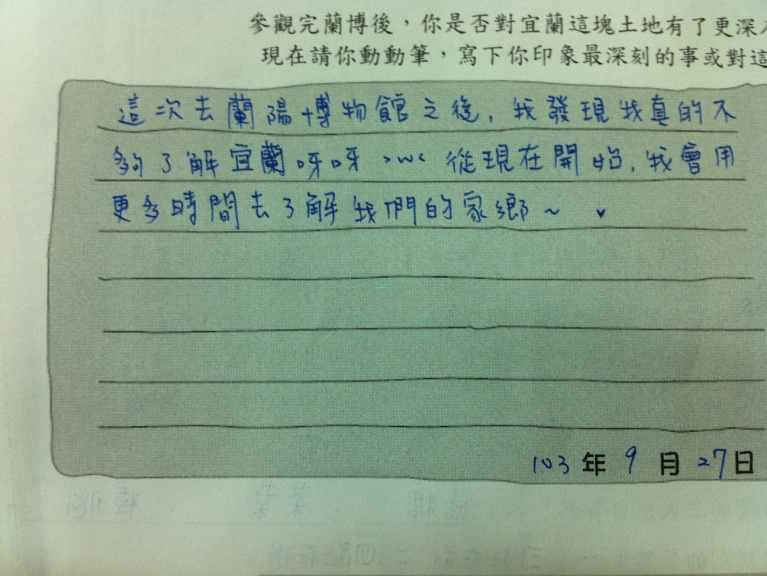 參觀完蘭博後，你是否對宜蘭這塊土地有了更深
現在請你動動筆，寫下你印象最深刻的事或對這
這次去蘭陽博物館之後，我發現我真的不
夠了解宜蘭呀呀 >w< 從現在開始，我會用
更多時間去了解我們的家鄉～ ♥
103 年 9 月 27 日